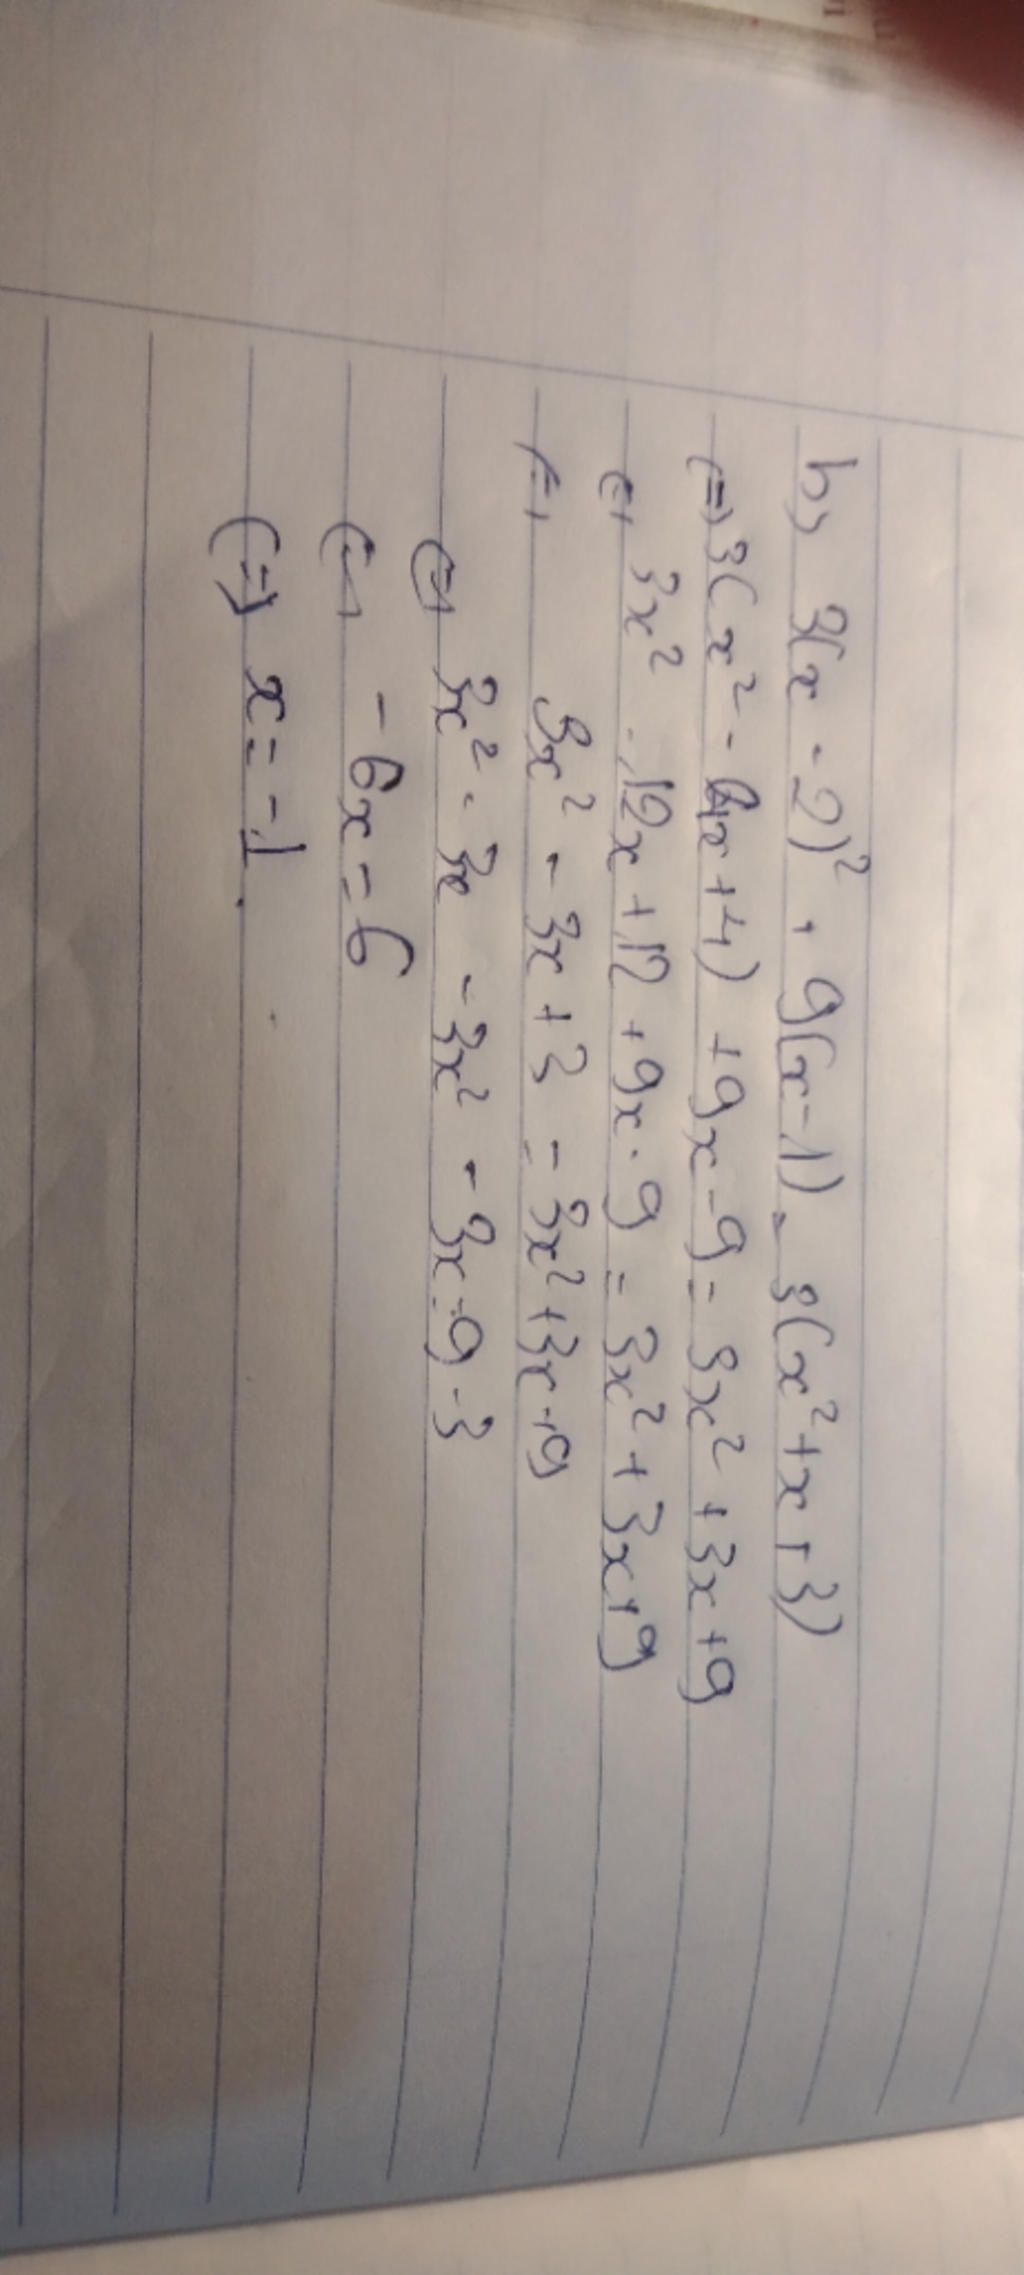 b, 3(x - 2)² + 9(x-1) = 3(x²+x+3)
(=) 3(x² - 4x+4) +9x-9 = 3x² +3x+9
(=) 3x² - 12x + 12 + 9x - 9 = 3x² + 3x+9
(=) 3x² - 3x + 3 = 3x² +3x+9
(=) 3x² - 3x - 3x² - 3x = 9 - 3
(=) - 6x = 6
(=) x = -1